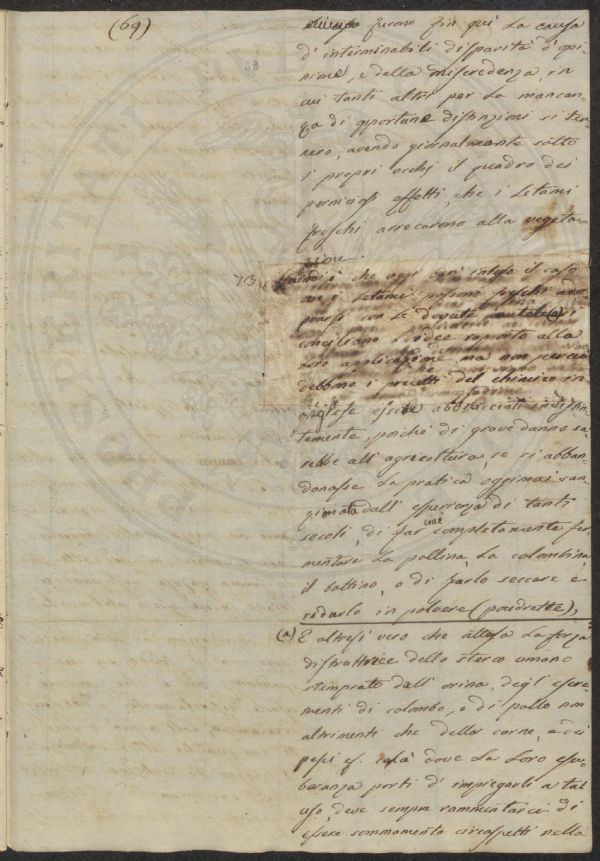 (69)
38
furono fin quì la causa
d'interminabili disparità d'opi-
nione, e della miscredenza, in
cui tanti altri per la mancan-
za di opportune distinzioni si ten-
nero, avendo giornalmente sotto
i propri occhj il quadro dei
perniciosi effetti, che i letami
freschi arrecarono alla vegeta-
zione.
73 è che oggi ben inteso il caso
ove i letami possono freschi ado-
prarsi con le dovute cautele (a) si
conciliano le idee rapporto alla
loro applicazione, ma non perciò
debbono i precetti del chimico in-
glese essere abbracciati indistin-
tamente, poichè di grave danno sa-
rebbe all'agricoltura, se si abban-
donasse la pratica oggimai san-
zionata dall'esperienza di tanti
secoli, di far completamente fer-
mentare la pollina, la colombina,
il bottino, o di farlo seccare e
ridurlo in polvere (poudrette),
(a) È altresì vero che attesa la forza
distruttrice dello sterco umano
stemprato dall'orina, degl'escre-
menti di colombo, e di pollo non
altrimenti che della carne, e dei
pesci dove la loro esu-
beranza porti d'impiegarli a tal
uso, deve sempre rammentarci di
essere sommamente circospetti nella